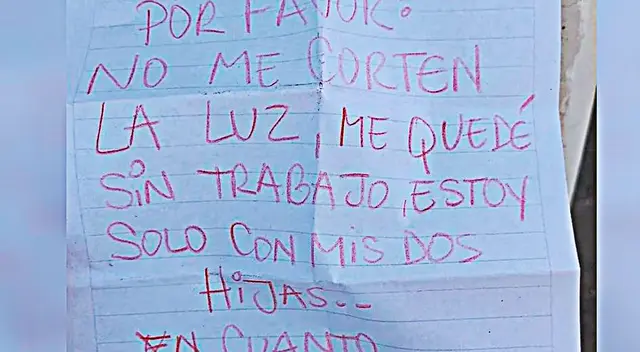 POR FAVOR.
NO ME CORTEN
LA LUZ, ME QUEDÉ
SIN TRABAJO, ESTOY
SOLO CON MIS DOS
HIJAS..
EN CUANTO